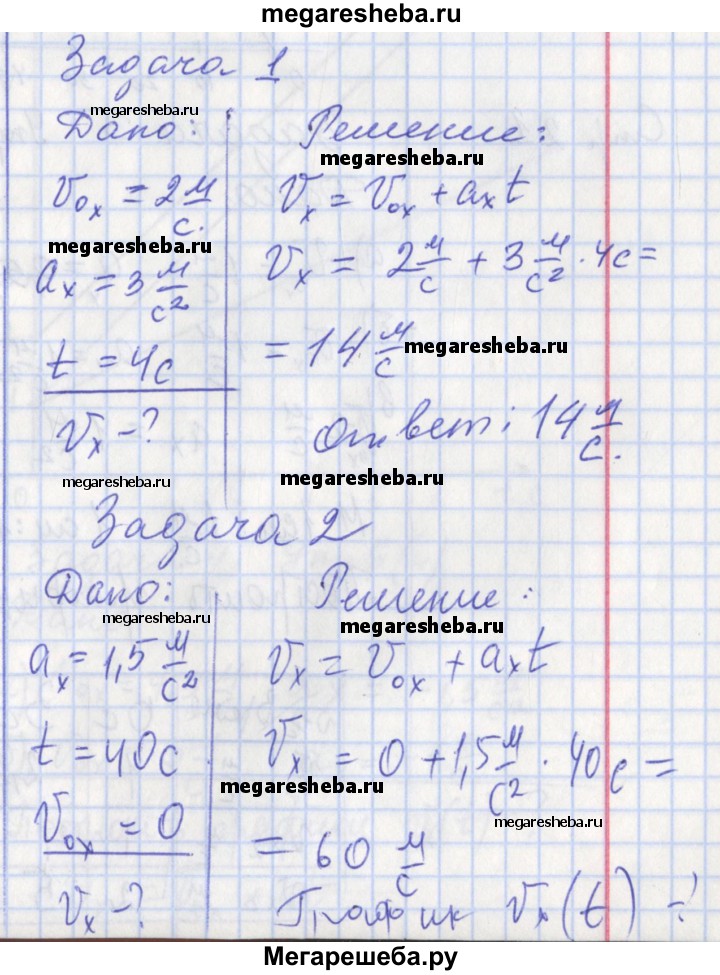 megaresheba.ru
Задача 1
megaresheba.ru
Дано:
v₀ₓ = 2 м/с.
megaresheba.ru
aₓ = 3 м/с²
t = 4с
vₓ - ?
Решение:
megaresheba.ru
vₓ = v₀ₓ + aₓt
vₓ = 2 м/с + 3 м/с² · 4с =
= 14 м/с
megaresheba.ru
Ответ: 14 м/с.
megaresheba.ru
megaresheba.ru
Задача 2
Дано:
megaresheba.ru
aₓ = 1,5 м/с²
t = 40с
v₀ₓ = 0
vₓ - ?
Решение:
megaresheba.ru
vₓ = v₀ₓ + aₓt
vₓ = 0 + 1,5 м/с² · 40с =
megaresheba.ru
megaresheba.ru
= 60 м/с
График vₓ(t) -
Мегарешеба.ру